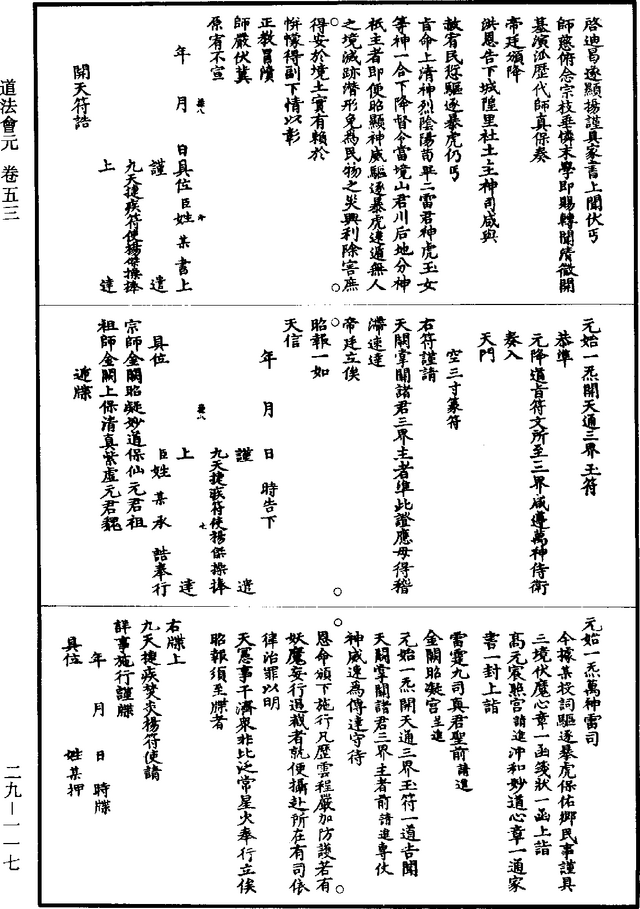 啓迪昌遂顯揚謹具家書上聞伏丐
師慈俯念宗枝垂憐末學即賜轉聞清微開
基演派歷代師真保奏
帝廷頒降
洪恩告下城隍里社土主神司咸與
赦宥民愆驅逐暴虎仍丐
旨命上清神烈陰陽苟畢二雷君神虎玉女
等神一合下降督令當境山君川后地分神
祇主者即便昭顯神威驅逐暴虎遠遁無人
之境滅跡潛形免為民物之災興利除害庶
得安於境土實有賴於
帡幪得副下情以彰
正教冒瀆
師嚴伏冀
原宥不宣
年 月 日具位臣姓 某 書上
謹 遣
九天捷疾符使楊傑操捧
上 達
開天符誥
元始一炁開天通三界玉符
恭準
元降道旨符文所至三界咸遵萬神侍衛
奏入
天門
空三寸篆符
右符謹請
天關掌關諸君三界主者準此證應毋得稽
滯速達
帝廷立俟
昭報一如
天信
年 月 日 時告下
謹 遣
九天捷疾符使楊傑操捧
上 達
具位 臣姓 某 承 誥奉行
宗師金闕昭凝妙道保仙元君祖
祖師金闕上保清真紫虛元君魏
遞牒
元始一炁萬神雷司
今據某投詞驅逐暴虎保佑鄉民事謹具
三境伏魔心章一函箋狀一函上詣
高元宸照宮請進沖和妙道心章一通家
書一封上詣
雷霆九司真君聖前請進
金闕昭凝宮呈進
元始一炁開天通三界玉符一道告聞
天關掌關諸君三界主者前請進專仗
神威遞為傳達守待
恩命頒下施行凡歷雲程嚴加防護若有
妖魔妄行遏截者就便攝赴所在有司依
律治罪以明
天憲事干濟眾非比泛常星火奉行立俟
昭報須至牒者
右牒上
九天捷疾焚炎楊符使請
詳事施行謹牒
年 月 日 時牒
具位 姓某押
道法會元 卷五三
二九—一一七